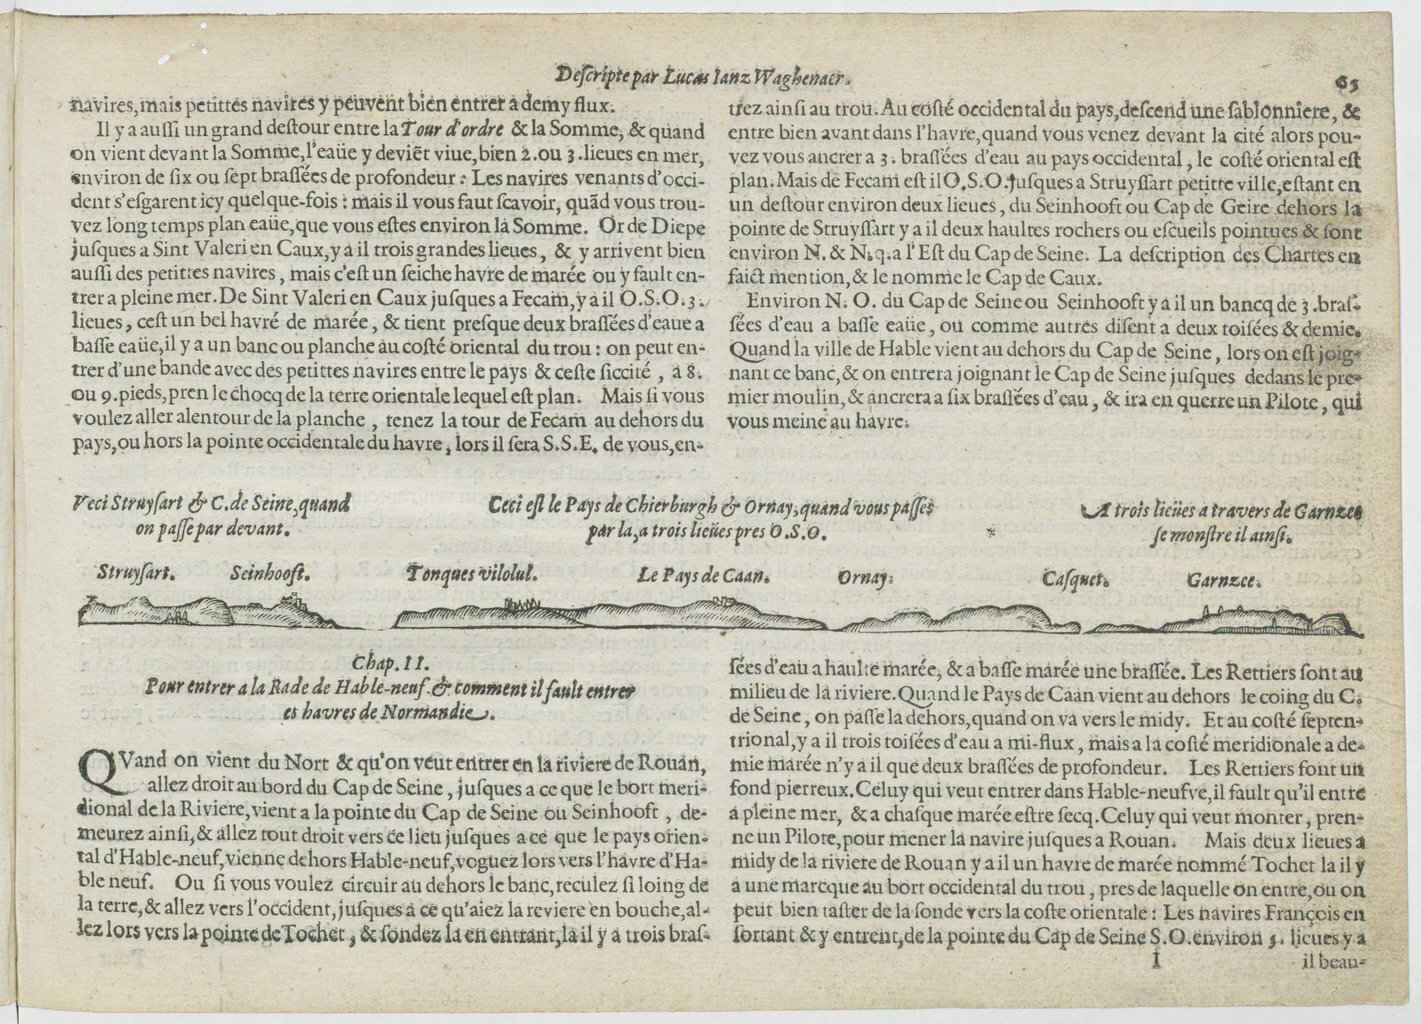 Descripte par Lucas Ianz Waghenaer.
65
navires, mais petittes navires y peuvent bien entrer a demy flux.
Il y a aussi un grand destour entre la Tour d'ordre & la Somme, & quand
on vient devant la Somme, l'eaüe y deviẽt viue, bien 2. ou 3. lieues en mer,
environ de six ou sept brassées de profondeur: Les navires venants d'occi-
dent s'esgarent icy quelque-fois: mais il vous faut scavoir, quãd vous trou-
vez long temps plan eaüe, que vous estes environ la Somme. Or de Diepe
jusques a Sint Valeri en Caux, y a il trois grandes lieues, & y arrivent bien
aussi des petittes navires, mais c'est un seiche havre de marée ou y fault en-
trer a pleine mer. De Sint Valeri en Caux jusques a Fecam, y a il O.S.O. 3.
lieues, cest un bel havré de marée, & tient presque deux brassées d'eaue a
basse eaüe, il y a un banc ou planche au costé oriental du trou: on peut en-
trer d'une bande avec des petittes navires entre le pays & ceste siccité, a 8.
ou 9. pieds, pren le chocq de la terre orientale lequel est plan. Mais si vous
voulez aller alentour de la planche, tenez la tour de Fecam au dehors du
pays, ou hors la pointe occidentale du havre, lors il sera S.S.E. de vous, en-
trez ainsi au trou. Au costé occidental du pays, descend une sablonniere, &
entre bien avant dans l'havre, quand vous venez devant la cité alors pou-
vez vous ancrer a 3. brassées d'eau au pays occidental, le costé oriental est
plan. Mais de Fecam est il O.S.O. jusques a Struyssart petitte ville, estant en
un destour environ deux lieues, du Seinhooft ou Cap de Geire dehors la
pointe de Struyssart y a il deux haultes rochers ou escueils pointues & sont
environ N. & N. q. a l'Est du Cap de Seine. La description des Chartes en
faict mention, & le nomme le Cap de Caux.
Environ N. O. du Cap de Seine ou Seinhooft y a il un bancq de 3. bras-
sées d'eau a basse eaüe, ou comme autres disent a deux toisées & demie.
Quand la ville de Hable vient au dehors du Cap de Seine, lors on est joig-
nant ce banc, & on entrera joignant le Cap de Seine jusques dedans le pre-
mier moulin, & ancrera a six brassées d'eau, & ira en querre un Pilote, qui
vous meine au havre.
Veci Struysart & C. de Seine, quand
on passe par devant.
Ceci est le Pays de Chierburgh & Ornay, quand vous passes
par la, a trois lieües pres O.S.O.
A trois lieües a travers de Garnzee
se monstre il ainsi.
Struysart. Seinhooft. Tonques vilolul. Le Pays de Caan. Ornay. Casquet. Garnzee.
Chap. II.
Pour entrer a la Rade de Hable-neuf & comment il fault entrer
es havres de Normandie.
QVand on vient du Nort & qu'on veut entrer en la riviere de Rouan,
allez droit au bord du Cap de Seine, jusques a ce que le bort meri-
dional de la Riviere, vient a la pointe du Cap de Seine ou Seinhooft, de-
meurez ainsi, & allez tout droit vers ce lieu jusques a ce que le pays orien-
tal d'Hable-neuf, vienne dehors Hable-neuf, voguez lors vers l'havre d'Ha-
ble neuf. Ou si vous voulez circuir au dehors le banc, reculez si loing de
la terre, & allez vers l'occident, jusques a ce qu'aiez la reviere en bouche, al-
lez lors vers la pointe de Tochet, & sondez la en entrant, la il y a trois bras-
sées d'eau a haulte marée, & a basse marée une brassée. Les Rettiers sont au
milieu de la riviere. Quand le Pays de Caan vient au dehors le coing du C.
de Seine, on passe la dehors, quand on va vers le midy. Et au costé septen-
trional, y a il trois toisées d'eau a mi-flux, mais a la costé meridionale a de-
mie marée n'y a il que deux brassées de profondeur. Les Rettiers sont un
fond pierreux. Celuy qui veut entrer dans Hable-neufve, il fault qu'il entre
a pleine mer, & a chasque marée estre secq. Celuy qui veut monter, pren-
ne un Pilote, pour mener la navire jusques a Rouan. Mais deux lieues a
midy de la riviere de Rouan y a il un havre de marée nommé Tochet la il y
a une marcque au bort occidental du trou, pres de laquelle on entre, ou on
peut bien taster de la sonde vers la coste orientale: Les navires François en
sortant & y entrent, de la pointe du Cap de Seine S.O. environ 3. lieues y a
I
il beau-